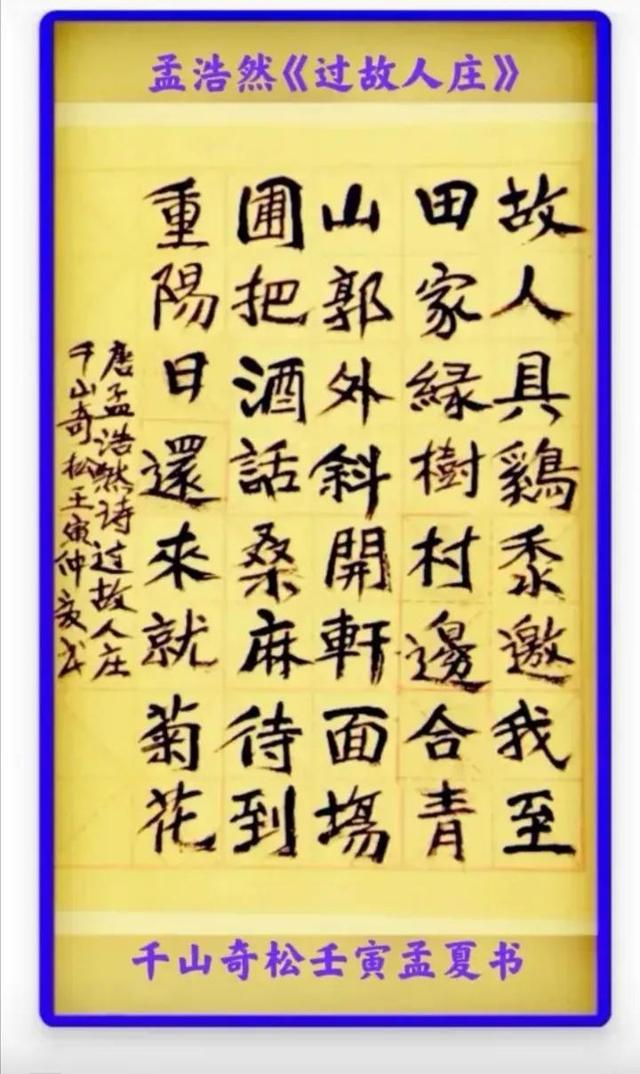 孟浩然《过故人庄》
故人具鷄黍邀我至
田家緑樹村邊合青
山郭外斜開軒面場
圃把酒話桑麻待到
重陽日還來就菊花
唐孟浩然诗过故人庄
千山奇松壬寅仲夏书
千山奇松壬寅孟夏书